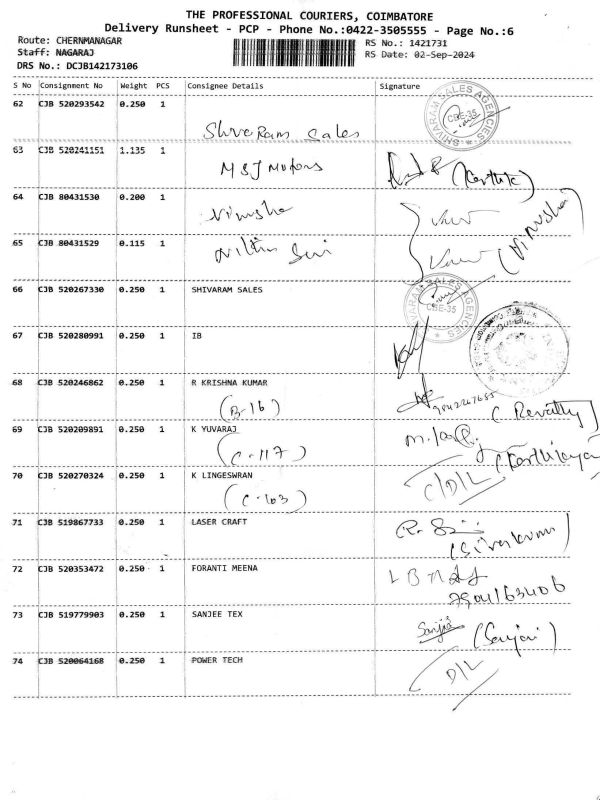 THE PROFESSIONAL COURIERS, COIMBATORE
Delivery Runsheet - PCP - Phone No.:0422-3505555 - Page No.:6
Route: CHERNMANAGAR RS No.: 1421731
Staff: NAGARAJ RS Date: 02-Sep-2024
DRS No.: DCJB142173106
S No Consignment No Weight PCS Consignee Details Signature
62 CJB 520293542 0.250 1
SHIVARAM SALES AGENCIES CBE-35
Shivaram Sales
63 CJB 520241151 1.135 1
MSJ Motors (Karthik)
64 CJB 80431530 0.200 1
Nimisha
65 CJB 80431529 0.115 1
66 CJB 520267330 0.250 1 SHIVARAM SALES
SHIVARAM SALES AGENCIES CBE-35
67 CJB 520280991 0.250 1 IB
68 CJB 520246862 0.250 1 R KRISHNA KUMAR
(B-16) (Revathy)
69 CJB 520209891 0.250 1 K YUVARAJ
(C-117)
70 CJB 520270324 0.250 1 K LINGESWRAN
(C-103) C/D/L
71 CJB 519867733 0.250 1 LASER CRAFT
(Sivakumar)
72 CJB 520353472 0.250 1 FORANTI MEENA
7904163406
73 CJB 519779903 0.250 1 SANJEE TEX
74 CJB 520064168 0.250 1 POWER TECH
D/L